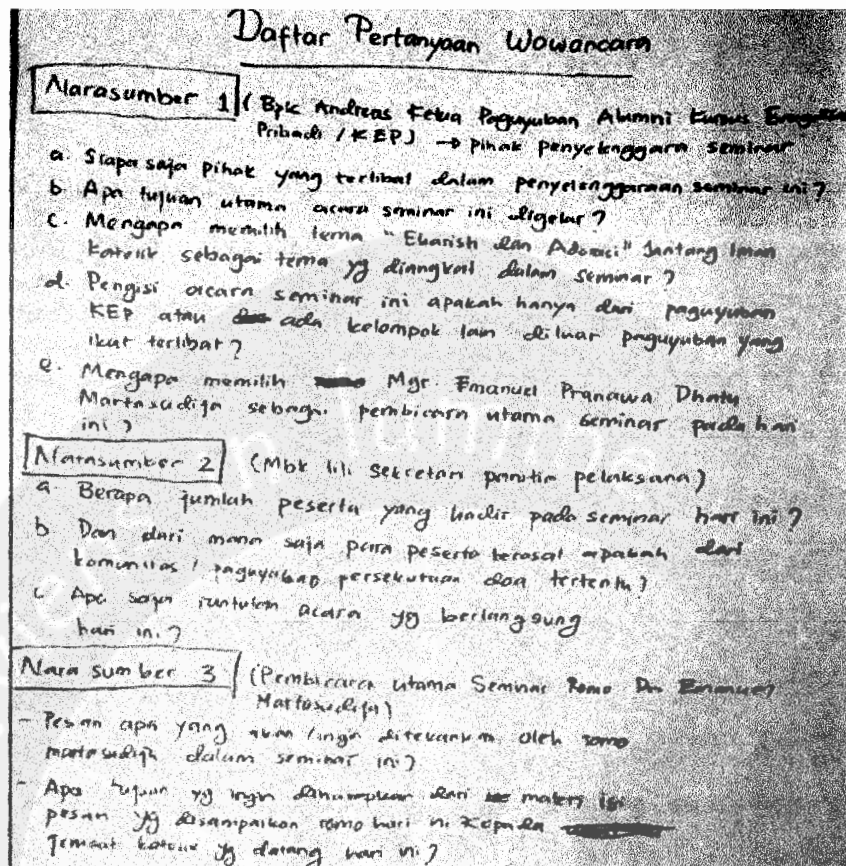 Daftar Pertanyaan Wawancara
Narasumber 1 (Bpk Andreas Ketua Paguyuban Alumni Kursus
Pribadi / KEP) → pihak penyelenggara seminar
a. Siapa saja pihak yang terlibat dalam penyelenggaraan seminar ini?
b. Apa tujuan utama acara seminar ini digelar?
c. Mengapa memilih tema "Ekarish dan Adorasi" Jantang Iman
Katolik sebagai tema yg diangkat dalam seminar?
d. Pengisi acara seminar ini apakah hanya dari paguyuban
KEP atau ada kelompok lain diluar paguyuban yang
ikut terlibat?
e. Mengapa memilih Mgr. Emanuel Pranawa Dhatu
Martasudija sebagai pembicara utama seminar pada hari
ini?
Narasumber 2 (Mbk lili sekretari panitia pelaksana)
a Berapa jumlah peserta yang hadir pada seminar hari ini?
b Dan dari mana saja para peserta berasal apakah dari
komunitas / paguyuban persekutuan doa tertentu?
c Apa saja runtutan acara yg berlangsung
hari ini?
Nara sumber 3 (Pembicara utama Seminar Romo Emanuel
Martosudija)
- Pesan apa yang akan / ingin ditekankan oleh romo
martasudija dalam seminar ini?
- Apa tujuan yg ingin dari materi isi
pesan yg disampaikan romo hari ini kepada
jemaat katolik yg datang hari ini?